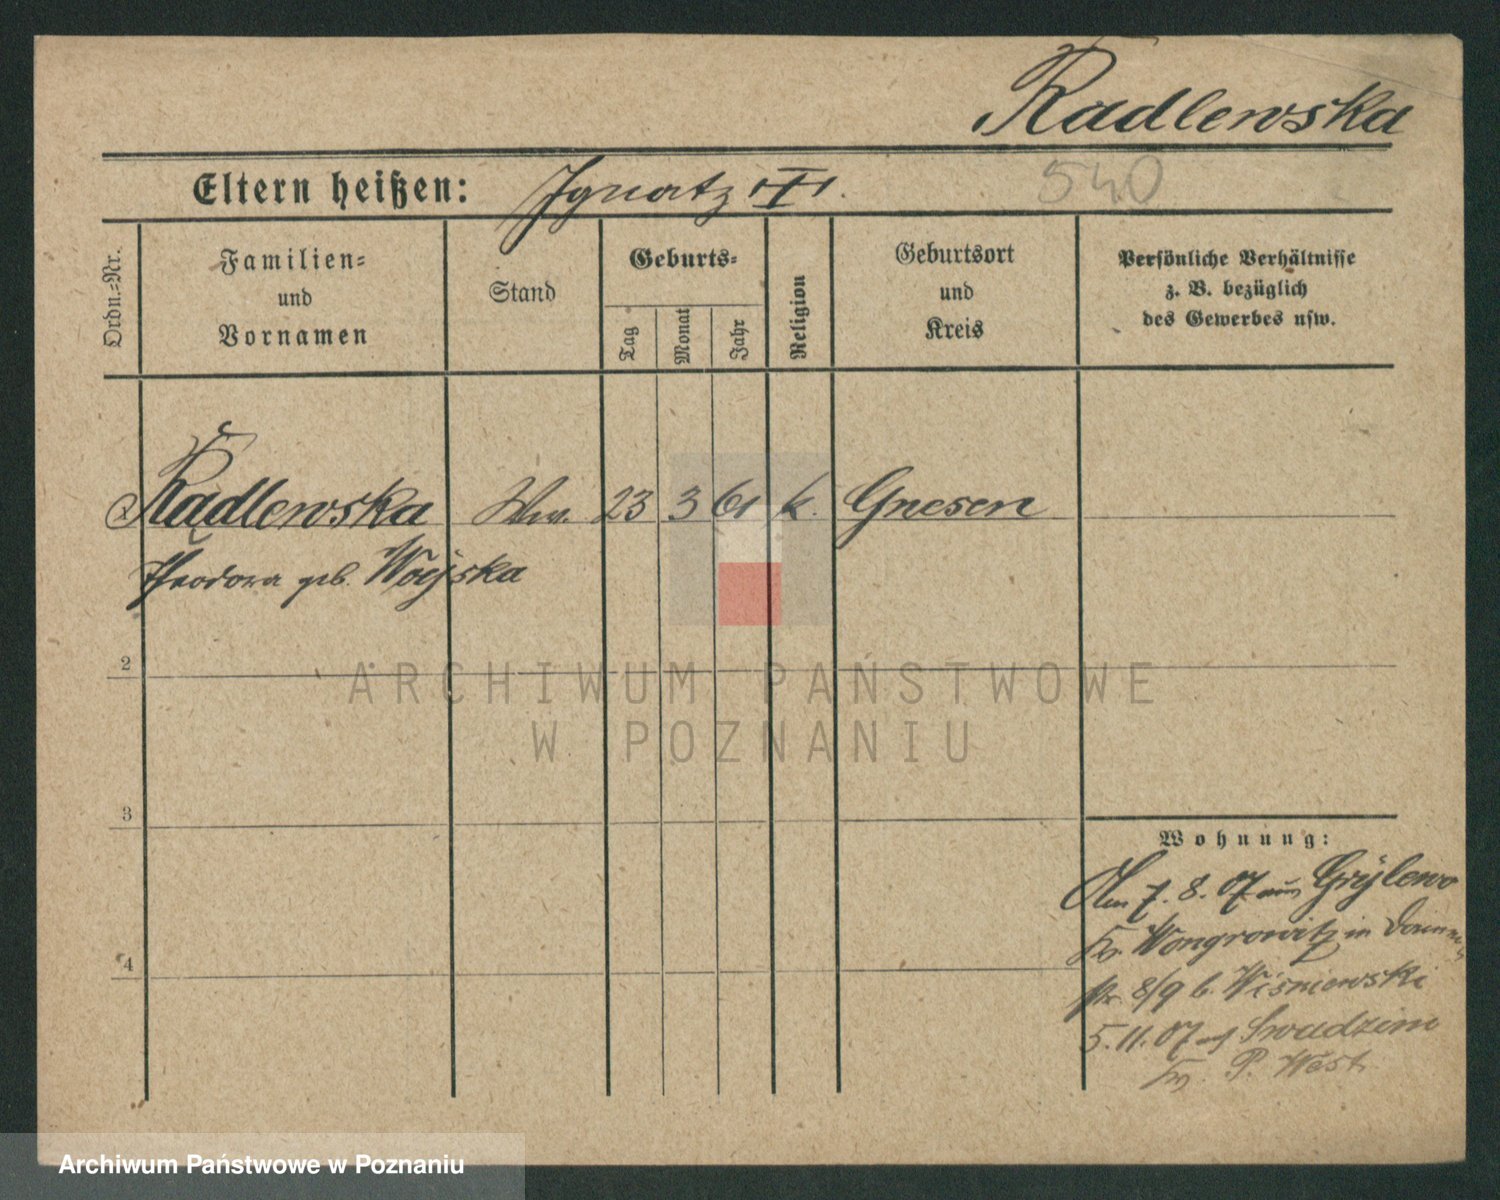 Radlewska
Eltern heißen: Ignatz
540
Ordn.-Nr.
Familien-
und
Vornamen
Stand
Geburts-
Tag
Monat
Jahr
Religion
Geburtsort
und
Kreis
Persönliche Verhältnisse
z. B. bezüglich
des Gewerbes usw.
Radlewska Ww. 23 3 61 k. Gnesen
Theodora geb. Woyska
2
3
4
ARCHIWUM PAŃSTWOWE
W POZNANIU
Wohnung:
Am 7. 8. 07 aus Grylewo
Kr. Wongrowitz in
str. 8/9 b. Wisniewski
5.11.07 Swadzim
Kr. P. West
Archiwum Państwowe w Poznaniu